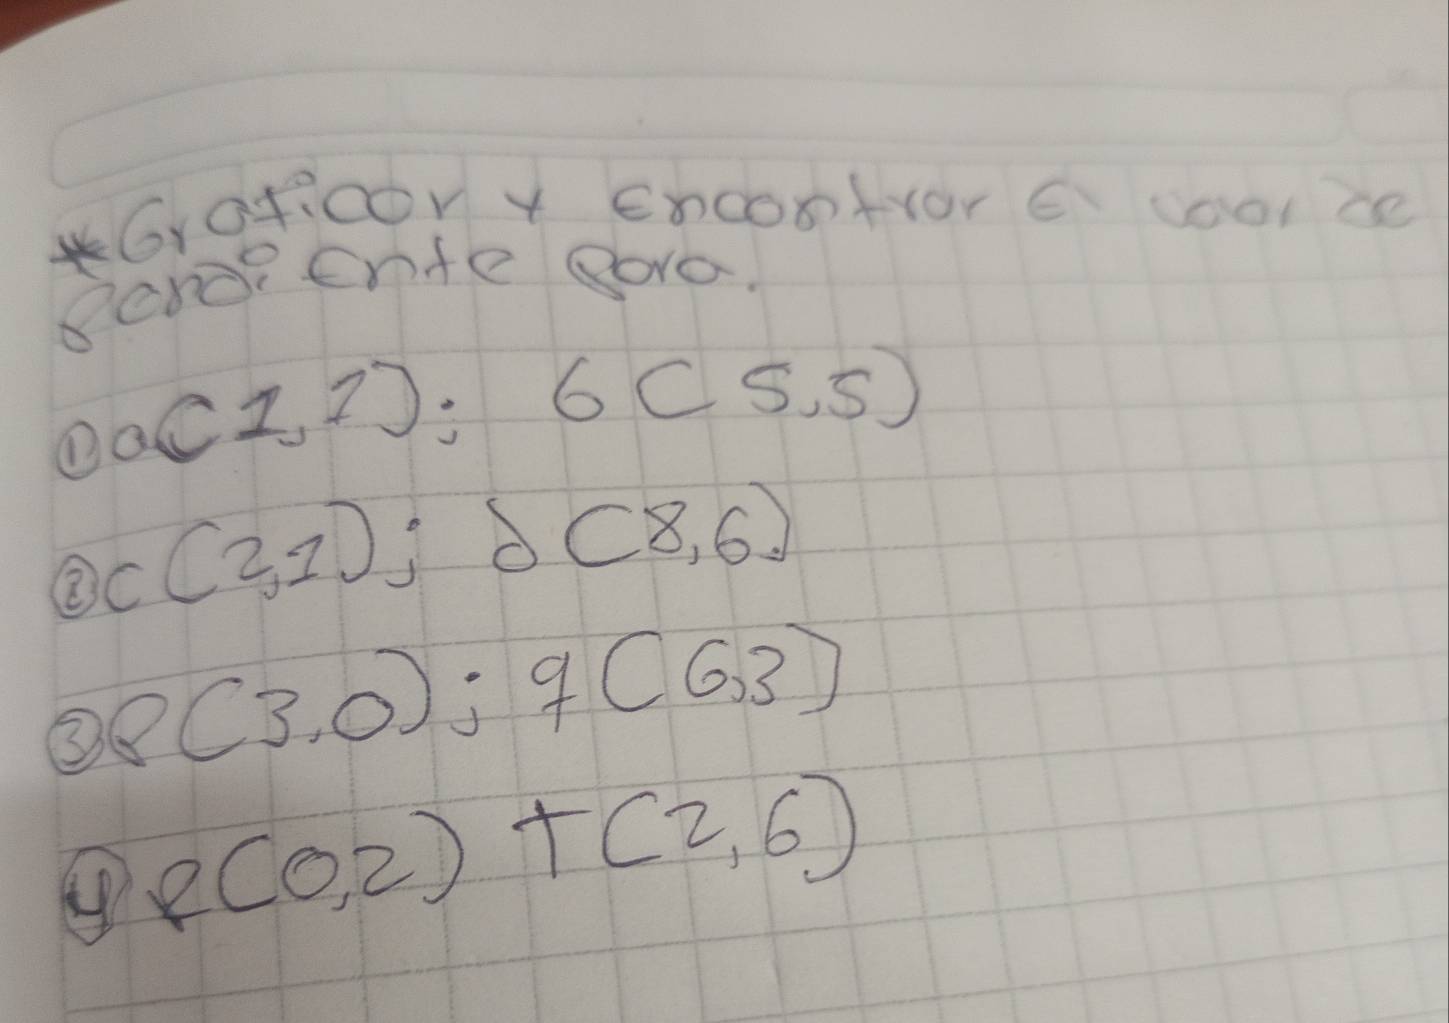 * Graficar y encontrar el valor de
pendiente para.
① a(1,1); b(5,5)
② c(2,1); d(8,6)
③ P(3,0); q(6,3)
④ R(0,2) T(2,6)